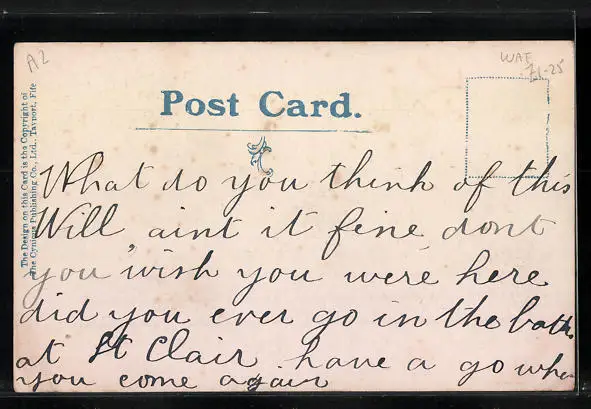 A2
WAF
7/-25
Post Card.
The Design on this Card is the Copyright of
The Cynicus Publishing Co., Ltd., Tayport, Fife
What do you think of this
Will, aint it fine dont
you wish you were here
did you ever go in the baths
at St Clair have a go when
you come again